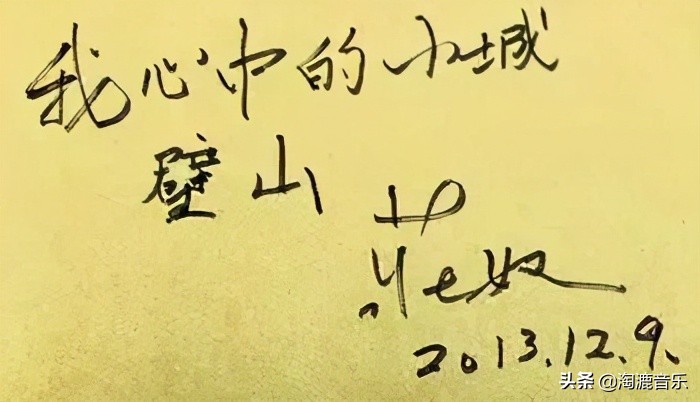 我心中的小城
壁山
莊奴
2013.12.9.
头条 @淘漉音乐